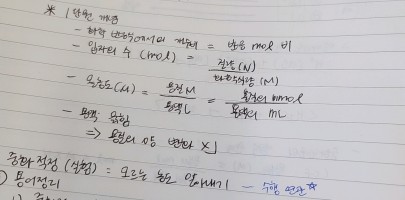 * 1단원 개념
- 화학 반응식에서의 계수비 = 반응 mol 비
- 입자의 수 (mol) = 질량 (N) / 화학식량 (M)
- 몰농도 (M) = 용질 M / 용액 L = 용질의 mmol / 용액의 mL
- 용액 묽힘
⇒ 용질의 양 변화 X
중화 적정 (실험) : 모르는 농도 알아내기 - 수행 연관 ☆
) 용어정리